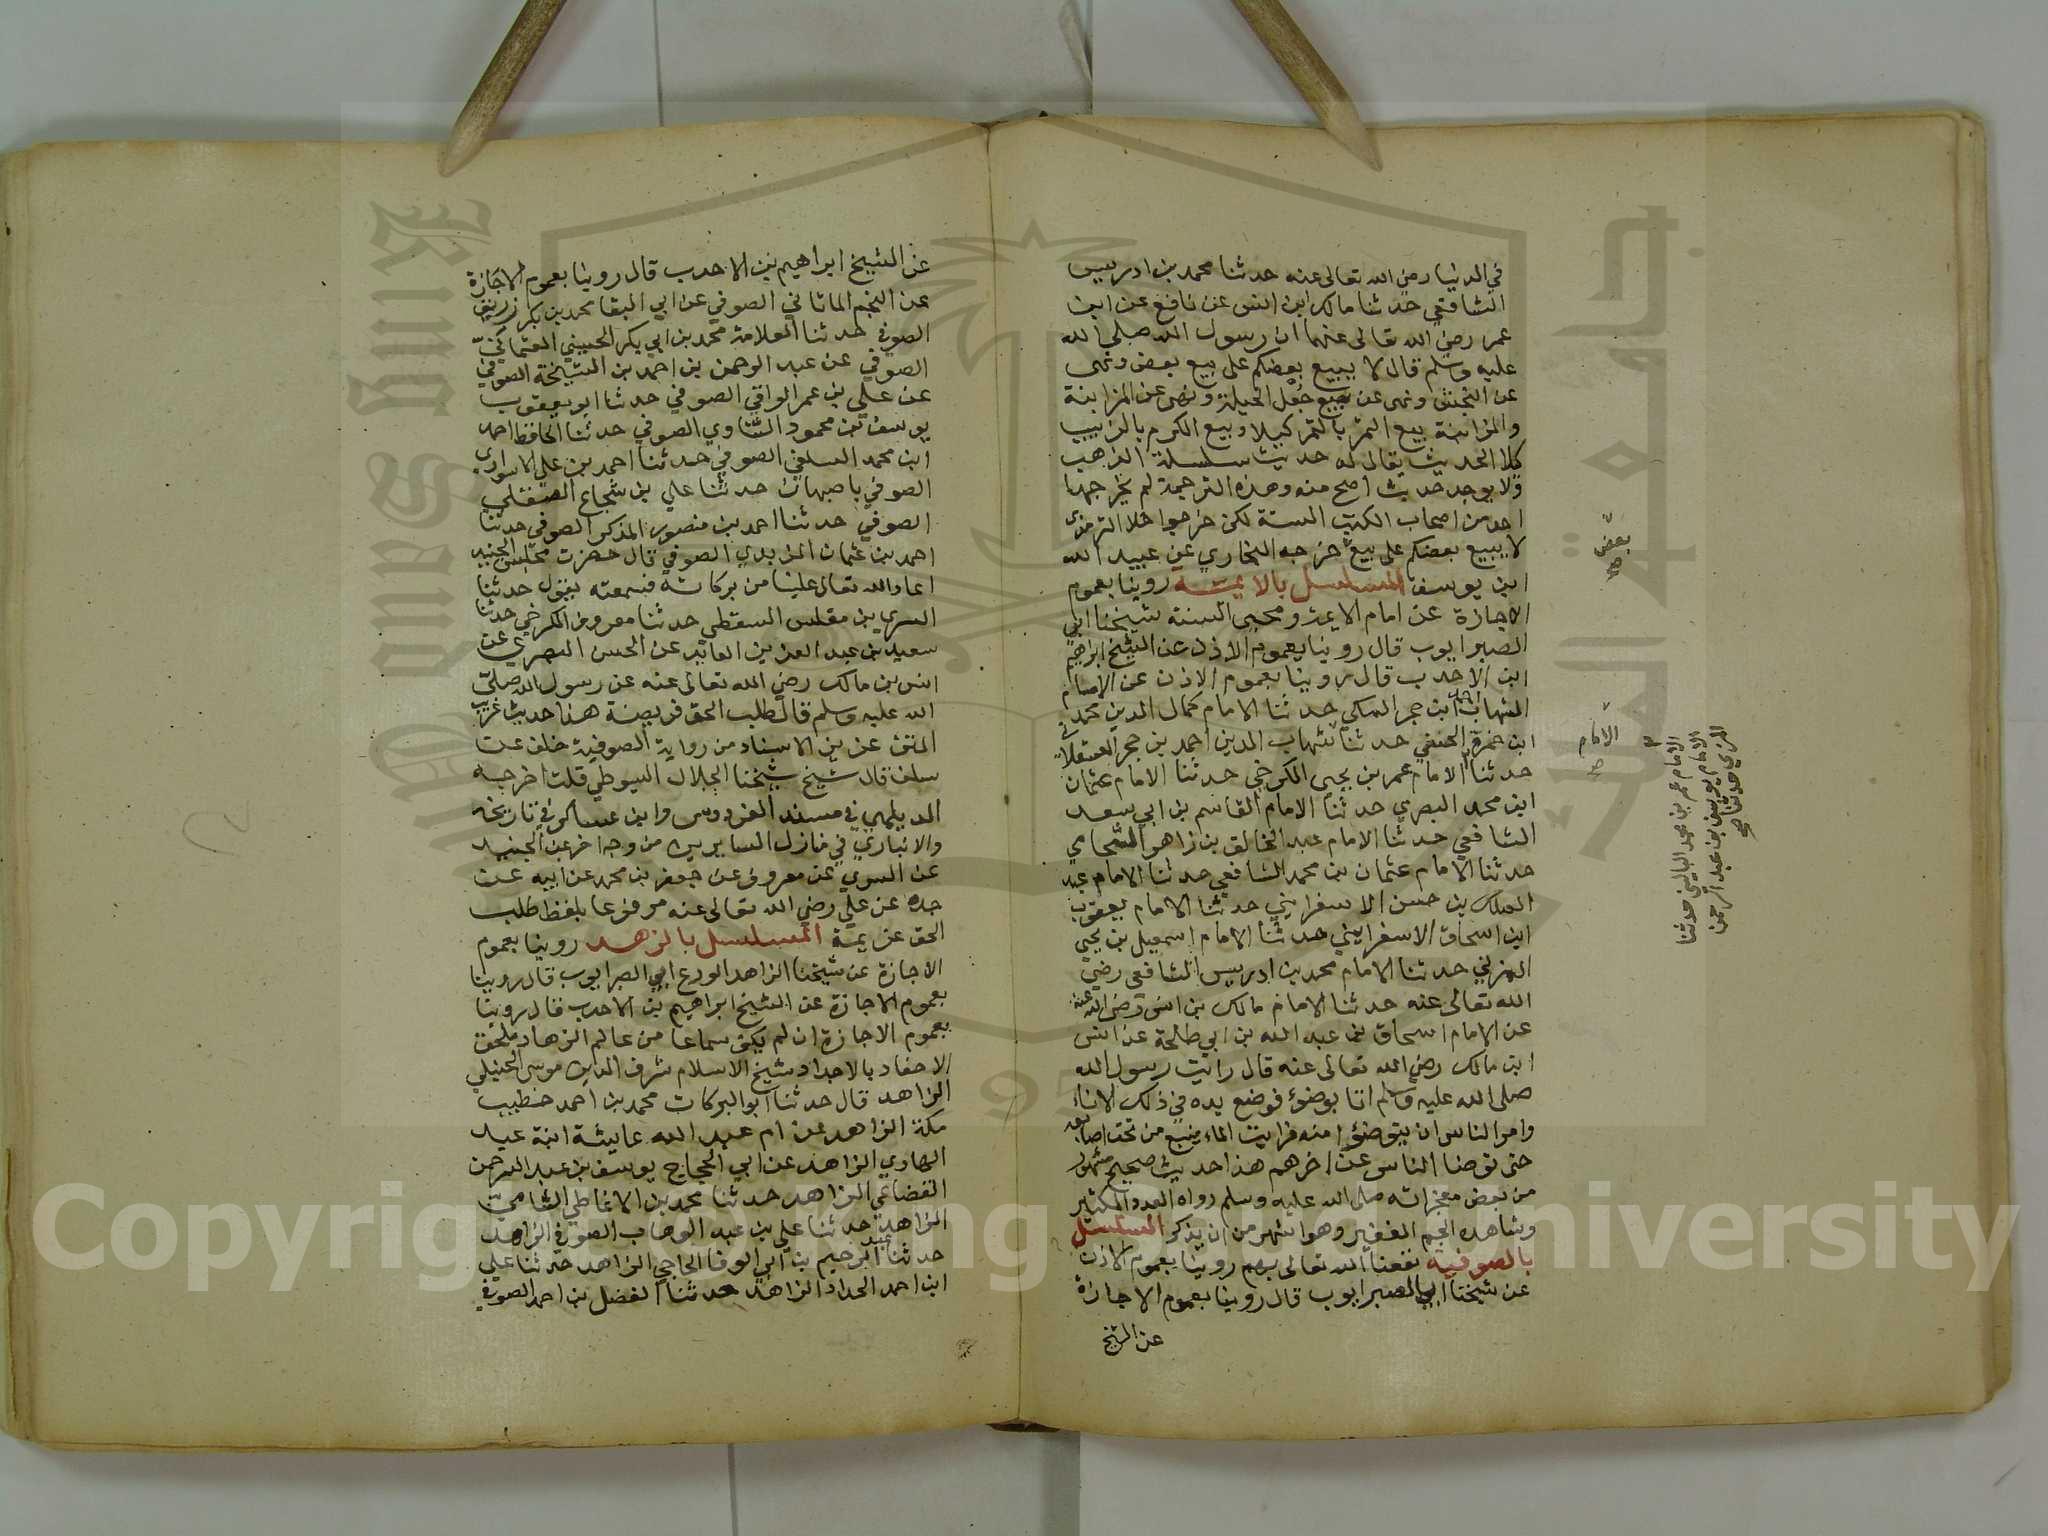 في الدنيا رضي الله تعالى عنه حدثنا محمد بن ادريس
الشافعي حدثنا مالك ابن انس عن نافع عن ابن
عمر رضي الله تعالى عنهما ان رسول الله صلى الله
عليه وسلم قال لا يبيع بعضكم على بيع بعض ونهى
عن النجش ونهى عن بيع حبل الحبلة ونهى عن المزابنة
والمزابنة بيع الثمر بالتمر كيلا وبيع الكرم بالزبيب
كيلا الحديث يقال له حديث سلسلة الذهب
ولا يوجد حديث اصح منه وهذه الترجمة لم يخرجها
احد من اصحاب الكتب الستة لكن خرجوا خلا الترمذي
لا يبيع بعضكم على بيع خرجه البخاري عن عبيد الله
ابن يوسف المسلسل بالايمة روينا بعموم
الاجازة عن امام الايمة ومحيي السنة شيخنا ابي
الصبر ايوب قال روينا بعموم الاذن عن الشيخ ابراهيم
ابن الاحدب قال روينا بعموم الاذن عن الامام
الشهاب احمد ابن حجر المكي حدثنا الامام كمال الدين محمد
ابن حمزة الحنفي حدثنا شهاب الدين احمد بن حجر العسقلاني
حدثنا الامام عمر بن يحيى الكرخي حدثنا الامام عثمان
ابن محمد البصري حدثنا الامام القاسم بن ابي سعد
الشافعي حدثنا الامام عبد الخالق بن زاهر الشحامي
حدثنا الامام عثمان بن محمد الشافعي حدثنا الامام عبد
الملك بن حسن الاسفرايني حدثنا الامام يعقوب
ابن اسحاق الاسفرايني حدثنا الامام اسمعيل بن يحيى
المزني حدثنا الامام محمد بن ادريس الشافعي رضي
الله تعالى عنه حدثنا الامام مالك بن انس رضي الله عنه
عن الامام اسحاق بن عبد الله بن ابي طلحة عن انس
ابن مالك رضي الله تعالى عنه قال رايت رسول الله
صلى الله عليه وسلم اتا بوضوء فوضع يده في ذلك الاناء
وامر الناس ان يتوضؤا منه فرايت الماء ينبع من تحت اصابعه
حتى توضا الناس عن اخرهم هذا حديث صحيح مشهور
من بعض معجزاته صلى الله عليه وسلم رواه العدد الكثير
وشاهده الجم الغفير وهو اشهر من ان يذكر المسلسل
بالصوفية نفعنا الله تعالى بهم روينا بعموم الاذن
عن شيخنا ابي الصبر ايوب قال روينا بعموم الاجازة
عن الشيخ
بعض
صح
الامام
صح
الامام عمر بن محمد البالسي حدثنا
الامام يوسف بن عبد الرحمن
المزي حدثنا صح
عن الشيخ ابراهيم بن الاحدب قال روينا بعموم الاجازة
عن النجم الماتاني الصوفي عن ابي البقا محمد بن بكر زريق
الصوفي حدثنا العلامة محمد بن ابي بكر الحبيبي العثماني
الصوفي عن عبد الرحمن بن احمد بن الشيخة الصوفي
عن علي بن عمر الواني الصوفي حدثنا ابو يعقوب
يوسف بن محمود الساوي الصوفي حدثنا الحافظ احمد
ابن محمد السلفي الصوفي حدثنا احمد بن علي الاسواري
الصوفي باصبهان حدثنا علي بن شجاع المصقلي
الصوفي حدثنا احمد بن منصور المذكر الصوفي حدثنا
احمد بن عثمان الزبيدي الصوفي قال حضرت مجلس الجنيد
اعاد الله تعالى علينا من بركاته فسمعته يقول حدثنا
السري بن مغلس السقطي حدثنا معروف الكرخي حدثنا
سعيد بن عبد العزيز العابد عن الحسن البصري عن
انس بن مالك رضي الله تعالى عنه عن رسول الله صلى
الله عليه وسلم قال طلب الحق فريضة هذا حديث غريب
المتن عزيز الاسناد من رواية الصوفية خلف عن
سلف قال شيخ شيخنا الجلال السيوطي قلت اخرجه
الديلمي في مسند الفردوس وابن عساكر في تاريخه
والانباري في منازل السايرين من وجه اخر عن الجنيد
عن السري عن معروف عن جعفر بن محمد عن ابيه عن
جده عن علي رضي الله تعالى عنه مرفوعا بلفظ طلب
الحق عزيمة المسلسل بالزهد روينا بعموم
الاجازة عن شيخنا الزاهد الورع ابي الصبر ايوب قال روينا
بعموم الاجازة عن الشيخ ابراهيم بن الاحدب قال روينا
بعموم الاجازة ان لم يكن سماعا من عالم الزهاد ملحق
الاحفاد بالاجداد شيخ الاسلام شرف الدين موسى الحنبلي
الزاهد قال حدثنا ابو البركات محمد بن احمد خطيب
مكة الزاهد عن ام عبد الله عايشة ابنة عبد
الهادي الزاهد عن ابي الحجاج يوسف بن عبد الرحمن
القضاعي الزاهد حدثنا محمد بن الانماطي الشامي
الزاهد حدثنا علي بن عبد الوهاب الصوفي الزاهد
حدثنا عبد الرحيم بن ابي الوفا الحاجي الزاهد حدثنا علي
ابن احمد الحداد الزاهد حدثنا الفضل بن احمد الصوفي
Copyright © King Saud University